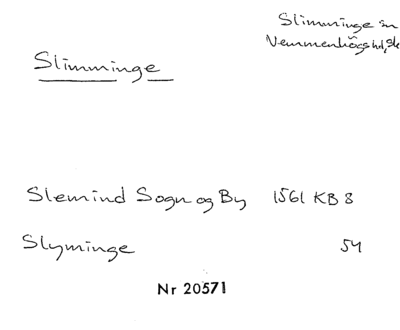 Slimminge sn
Vemmenhögs hd, Sk
Slimminge
Slemind Sogn og By 1561 KB 8
Slyminge 54
Nr 20571